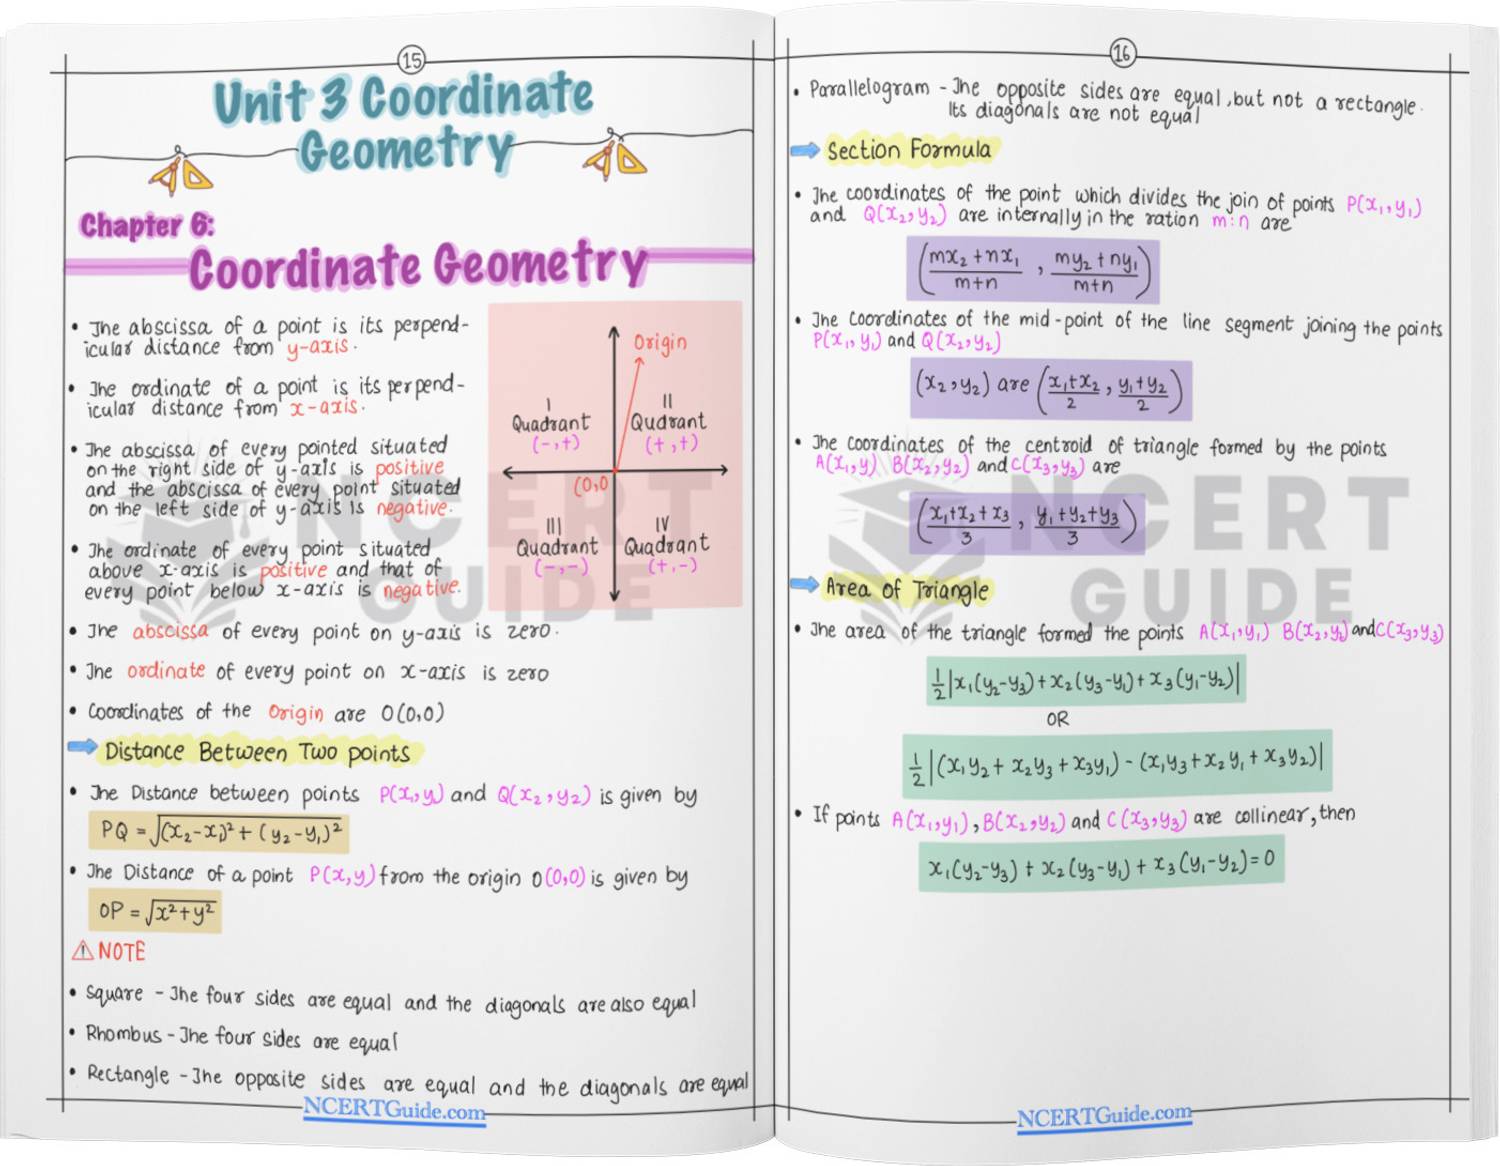 15
Unit 3 Coordinate
Geometry
Chapter 6:
Coordinate Geometry
• The abscissa of a point is its perpend-
icular distance from y-axis.
• The ordinate of a point is its perpend-
icular distance from x-axis.
• The abscissa of every pointed situated
on the right side of y-axis is positive
and the abscissa of every point situated
on the left side of y-axis is negative.
• The ordinate of every point situated
above x-axis is positive and that of
every point below x-axis is negative.
Origin
I
Quadrant
(-,+)
II
Qudrant
(+,+)
(0,0
III
Quadrant
(-,-)
IV
Quadrant
(+,-)
• The abscissa of every point on y-axis is zero.
• The ordinate of every point on x-axis is zero
• Coordinates of the Origin are O(0,0)
Distance Between Two points
• The Distance between points P(x₁,y) and Q(x₂,y₂) is given by
PQ = √(x₂-x₁)²+(y₂-y₁)²
• The Distance of a point P(x,y) from the origin O(0,0) is given by
OP = √x²+y²
⚠ NOTE
• Square - The four sides are equal and the diagonals are also equal
• Rhombus - The four sides are equal
• Rectangle - The opposite sides are equal and the diagonals are equal
NCERTGuide.com
NCERT
GUIDE
16
• Parallelogram - The opposite sides are equal, but not a rectangle.
Its diagonals are not equal
Section Formula
• The coordinates of the point which divides the join of points P(x₁,y₁)
and Q(x₂,y₂) are internally in the ration m:n are
(mx₂+nx₁/m+n , my₂+ny₁/m+n)
• The Coordinates of the mid-point of the line segment joining the points
P(x₁,y₁) and Q(x₂,y₂)
(x₂,y₂) are (x₁+x₂/2 , y₁+y₂/2)
• The coordinates of the centroid of triangle formed by the points
A(x₁,y) B(x₂,y₂) and C(x₃,y₃) are
(x₁+x₂+x₃/3 , y₁+y₂+y₃/3)
Area of Triangle
• The area of the triangle formed the points A(x₁,y₁) B(x₂,y₂) and C(x₃,y₃)
½|x₁(y₂-y₃)+x₂(y₃-y₁)+x₃(y₁-y₂)|
OR
½|(x₁y₂+x₂y₃+x₃y₁)-(x₁y₃+x₂y₁+x₃y₂)|
• If points A(x₁,y₁), B(x₂,y₂) and C(x₃,y₃) are collinear, then
x₁(y₂-y₃)+x₂(y₃-y₁)+x₃(y₁-y₂)=0
NCERTGuide.com
NCERT
GUIDE